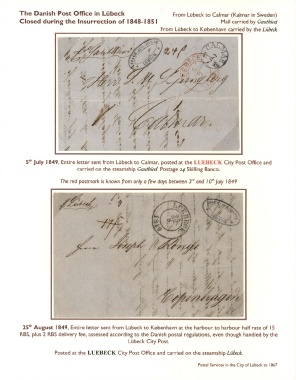 The Danish Post Office in Lübeck
Closed during the Insurrection of 1848-1851
From Lübeck to Calmar (Kalmar in Sweden)
Mail carried by Gauthiod
From Lübeck to København carried by the Lübeck
Calmar
5th July 1849, Entire letter sent from Lübeck to Calmar, posted at the LUEBECK City Post Office and
carried on the steamship Gauthiod Postage 24 Skilling Banco.
The red postmark is known from only a few days between 3rd and 10th July 1849
Copenhagen
25th August 1849, Entire letter sent from Lübeck to København at the harbour to harbour half rate of 15
RBS, plus 2 RBS delivery fee, assessed according to the Danish postal regulations, even though handled by the
Lübeck City Post.
Posted at the LUEBECK City Post Office and carried on the steamship Lübeck.
Postal Services in the City of Lübeck to 1867